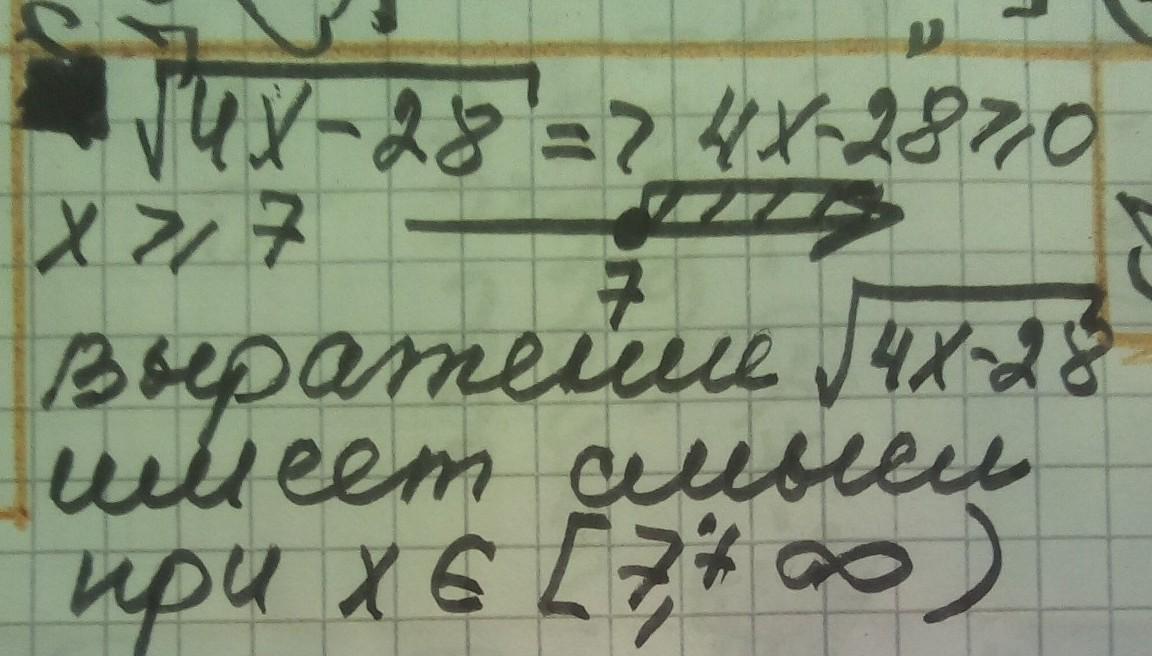 √4x-28 => 4x-28⩾0
x ⩾ 7
7
Выражение √4x-28
имеет смысл
при x ∈ [7;+∞)